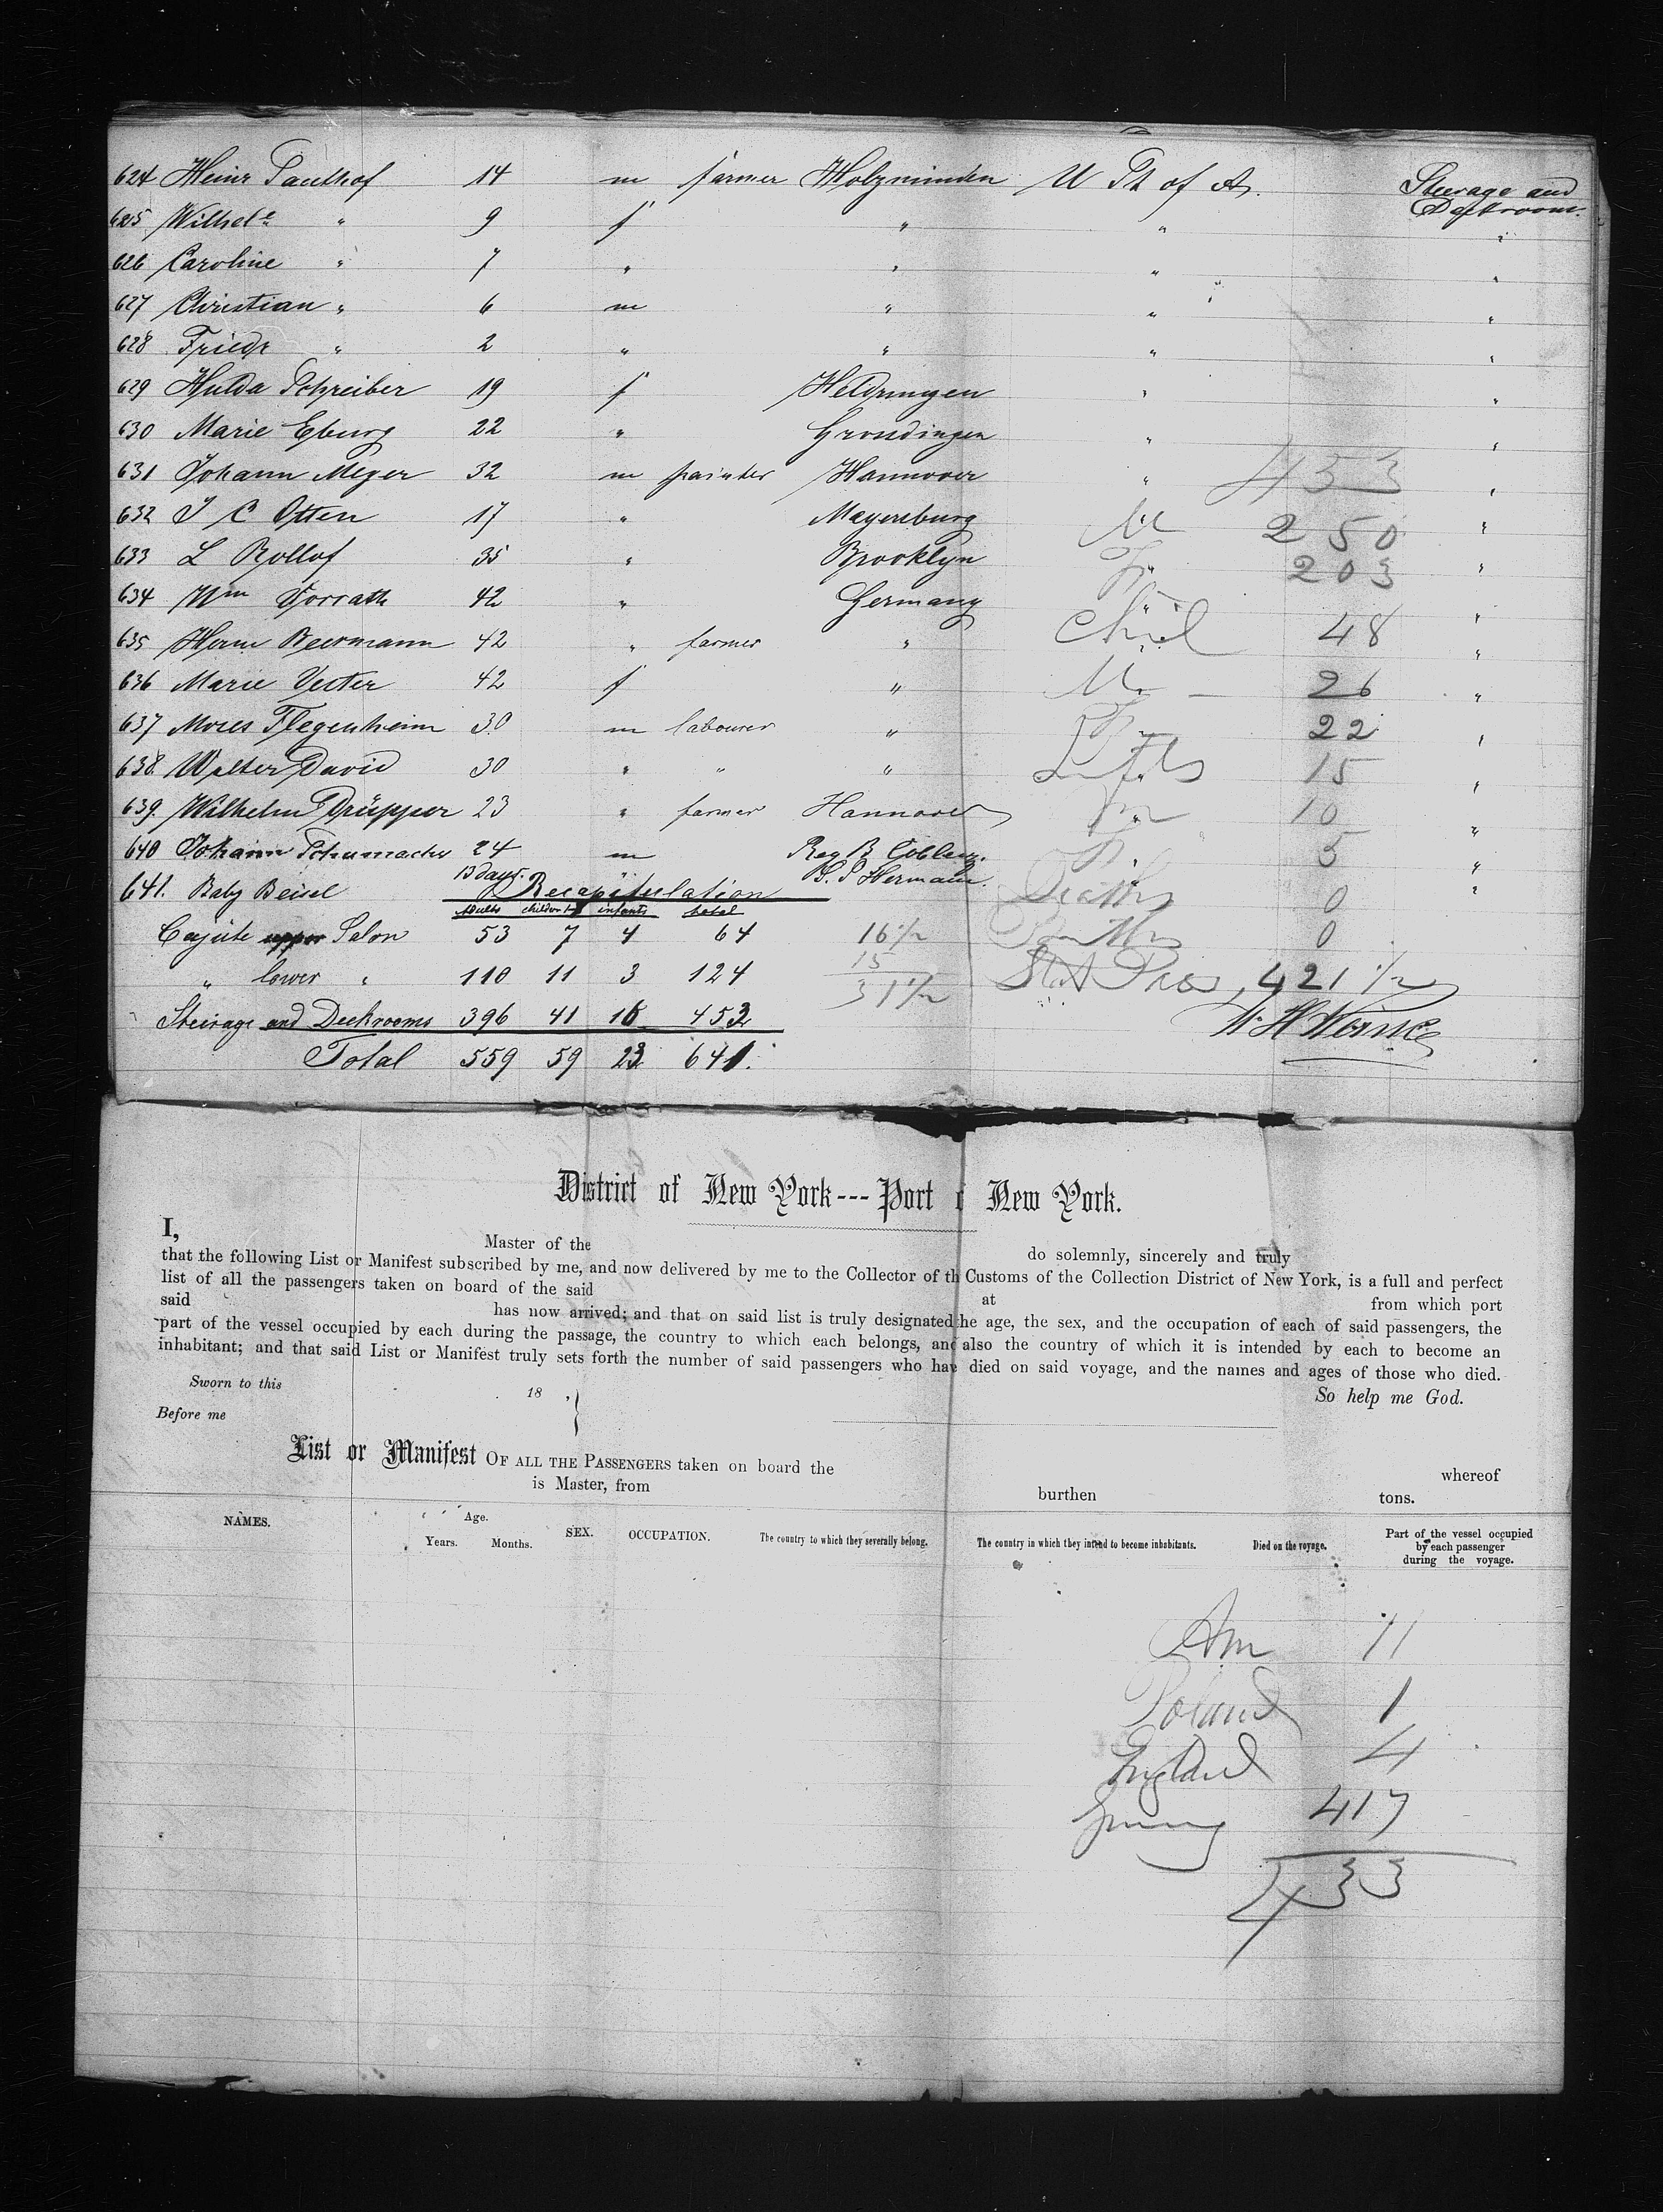 624 Heinr Sauthof 14 m farmer Holzminden U St of A. Steerage and
Deckroom.
625 Wilhele " 9 f " " "
626 Caroline " 7 " " " "
627 Christian " 6 m " " "
628 Friedr " 2 " " " "
629 Hulda Schreiber 19 f Heldrungen " "
630 Marie Eburg 22 " " "
631 Johann Meyer 32 m painter Hannover " 453 "
632 J C Otten 17 " Mayenburg M 250 "
633 L Rollof 35 " Brooklyn F 203 "
634 Wm Vorrath 42 " Germany " "
635 Herm Beermann 42 " farmer " Chil 48 "
636 Marie Vetter 42 f " M 26 "
637 Moses Flegenheim 30 m labourer " F 22 "
638. Walter David 30 " " " Infts 15 "
639. Wilhelm Drüpper 23 " farmer Hannover m 10 "
640 Johann Schumacher 24 m Reg B Coblenz. F 5 "
641. Baby Beisel 13 days. S. S Hermann. Deaths 0 "
Recapitulation
adults children infants total
Cajüte upper Salon 53 7 4 64 16 1/2 0
" lower " 110 11 3 124 15 Stat Pass 421 1/2
31 1/2
Steerage and Deckrooms 396 41 16 453
Total 559 59 23 641.
District of New York --- Port o New York.
I, Master of the do solemnly, sincerely and truly
that the following List or Manifest subscribed by me, and now delivered by me to the Collector of th Customs of the Collection District of New York, is a full and perfect
list of all the passengers taken on board of the said at from which port
said has now arrived; and that on said list is truly designated he age, the sex, and the occupation of each of said passengers, the
part of the vessel occupied by each during the passage, the country to which each belongs, and also the country of which it is intended by each to become an
inhabitant; and that said List or Manifest truly sets forth the number of said passengers who have died on said voyage, and the names and ages of those who died.
Sworn to this 18 , So help me God.
Before me
List or Manifest OF ALL THE PASSENGERS taken on board the whereof
is Master, from burthen tons.
NAMES. Age. SEX. OCCUPATION. The country to which they severally belong. The country in which they intend to become inhabitants. Died on the voyage. Part of the vessel occupied
Years. Months. by each passenger
during the voyage.
Am 11
Poland 1
England 4
Germy 417
433